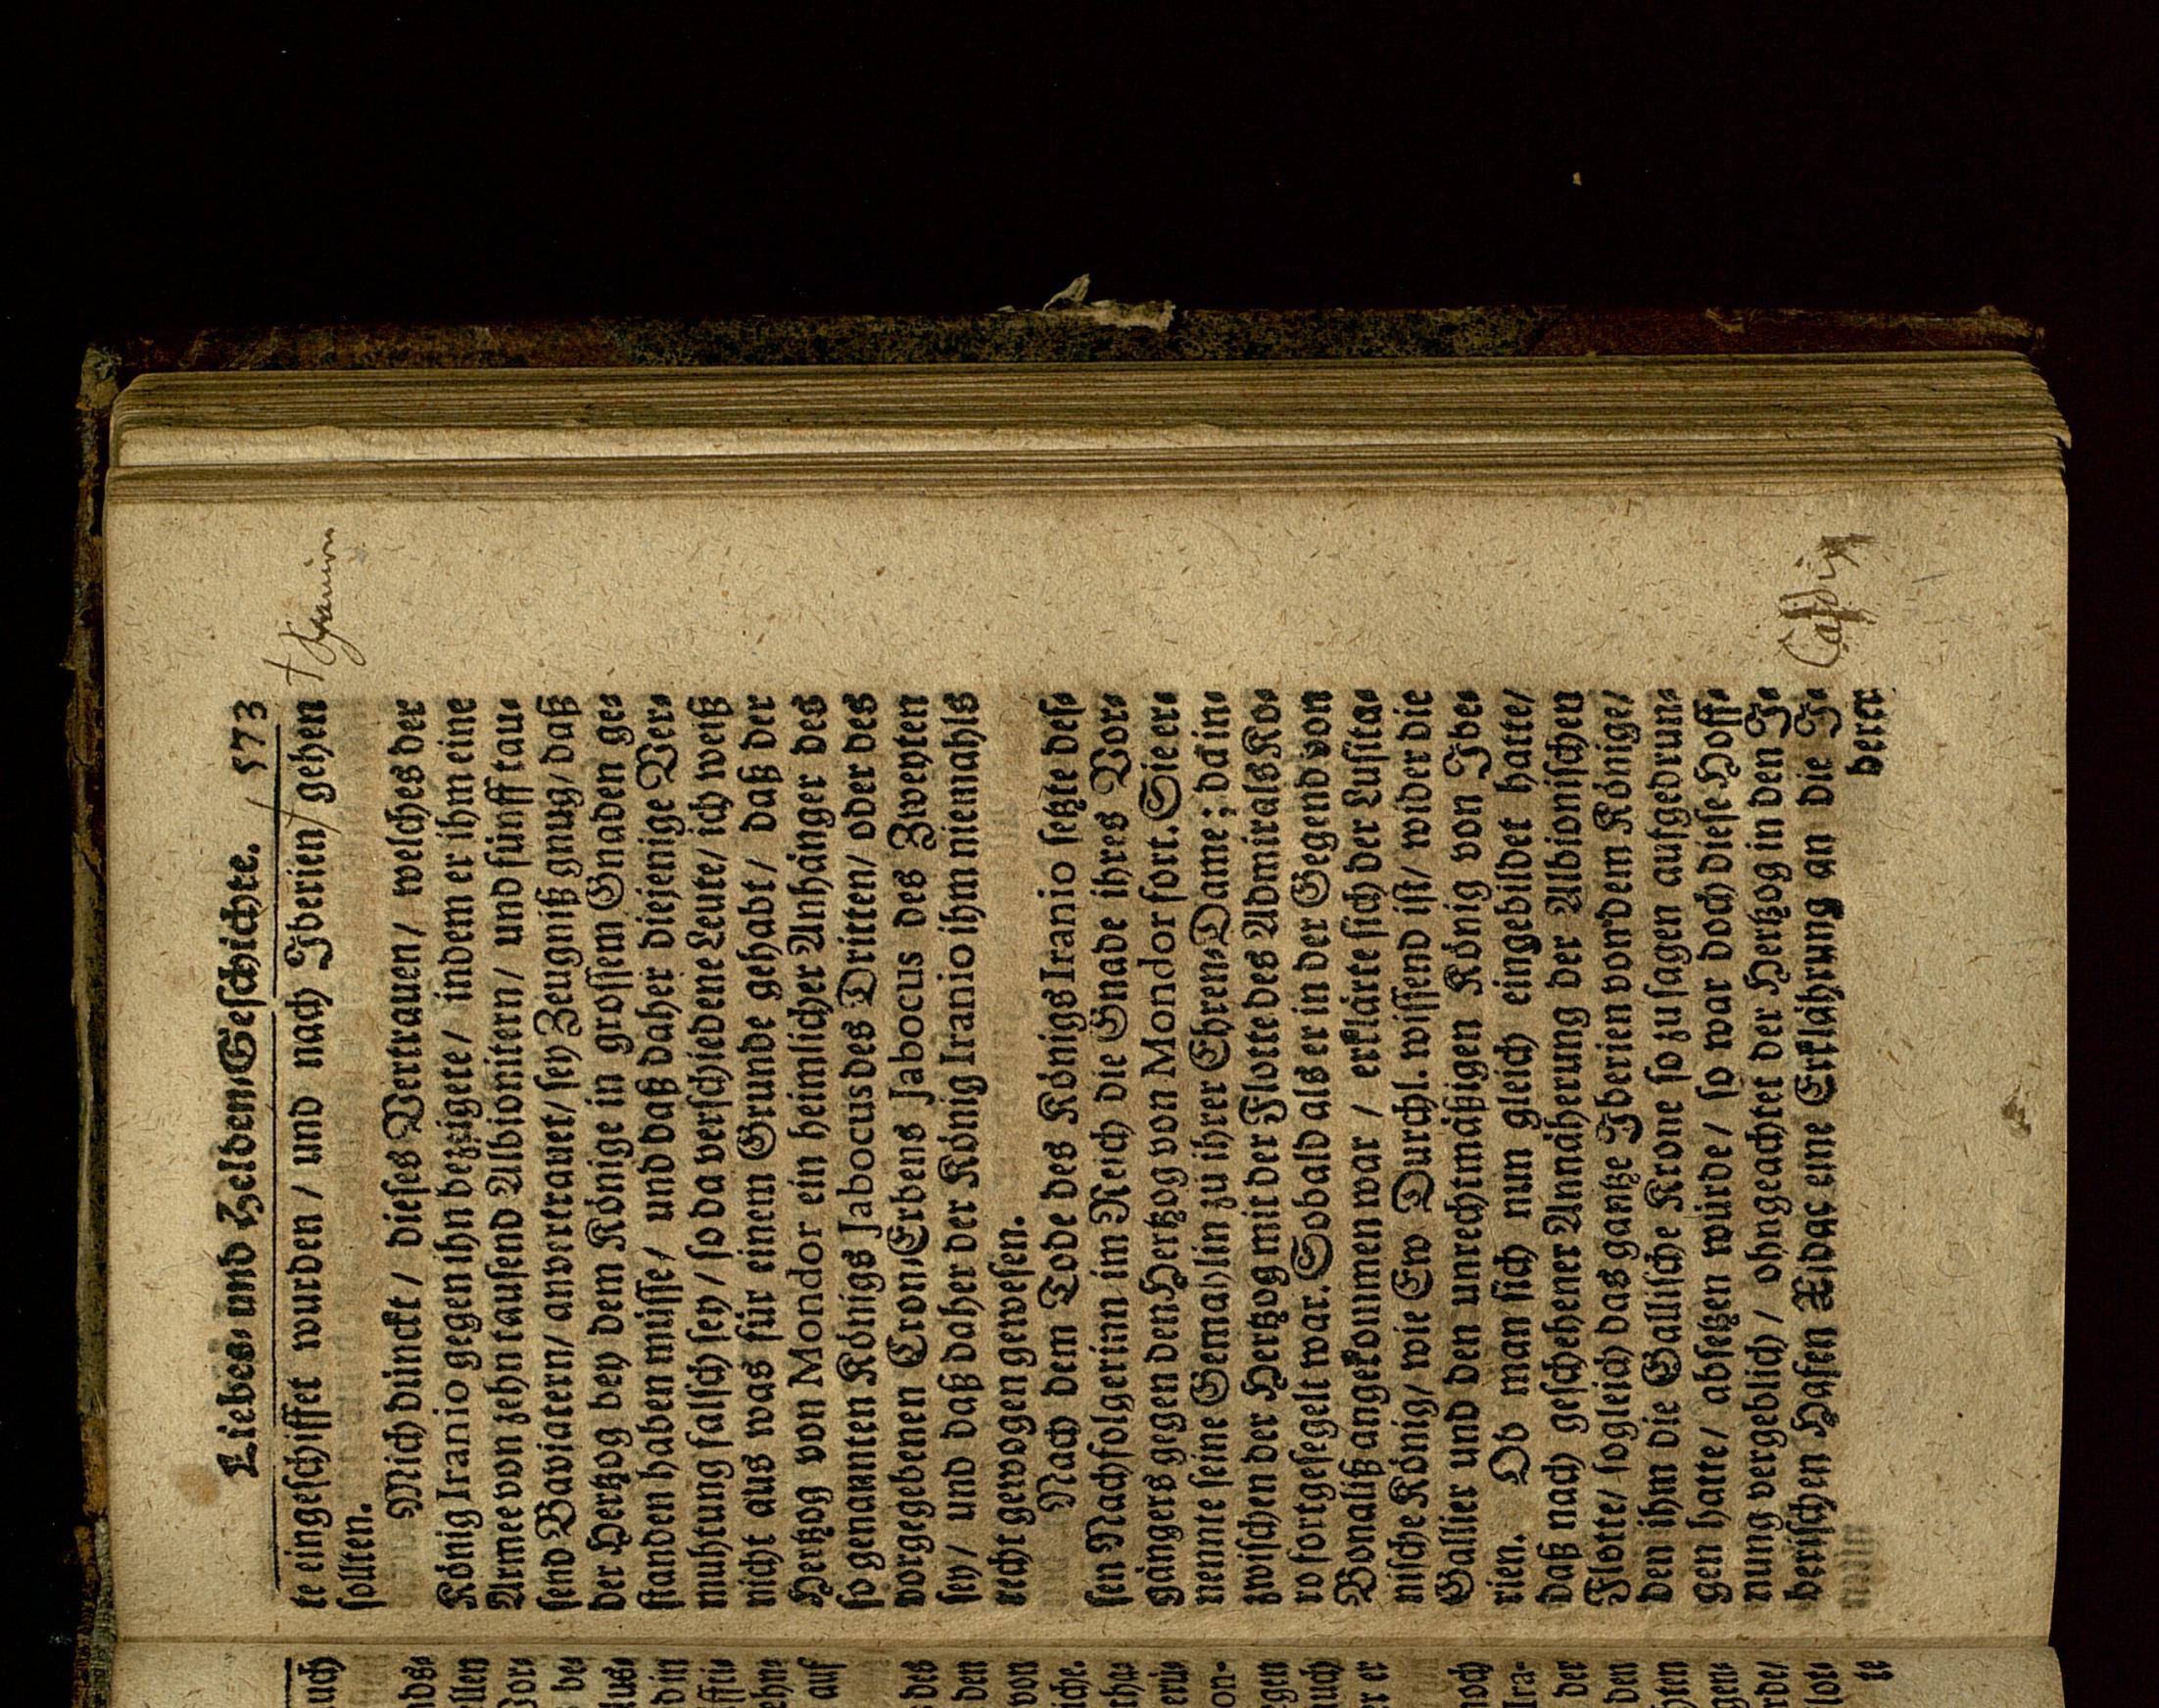 Liebes- und Helden-Geschichte. 573
te eingeschiffet wurden / und nach Iberien / gehen
sollten.
Mich dünckt / dieses Vertrauen / welches der
König Iranio gegen ihn bezeigete / indem er ihm eine
Armee von zehn tausend Albionitern / und fünff tau-
send Baviatern / anvertrauet / sey Zeugniß gnug / daß
der Hertzog bey dem Könige in grossem Gnaden ge-
standen haben müsse / und daß daher diejenige Ver-
muhtung falsch sey / so da verschiedene Leute / ich weiß
nicht aus was für einem Grunde gehabt / daß der
Hertzog von Mondor ein heimlicher Anhänger des
so genannten Königs Jabocus des Dritten / oder des
vorgegebenen Cron-Erbens Jabocus des Zweyten
sey / und daß daher der König Iranio ihm niemahls
recht gewogen gewesen.
Nach dem Tode des Königs Iranio setzte des-
sen Nachfolgerinn im Reich die Gnade ihres Vor-
gängers gegen den Hertzog von Mondor fort. Sie er-
nennte seine Gemahlin zu ihrer Ehren-Dame; da in-
zwischen der Hertzog mit der Flotte des Admirals Ko-
ro fortgesegelt war. Sobald als er in der Gegend von
Bonaliß angekommen war / erklärte sich der Lusita-
nische König / wie Ew Durchl. wissend ist / wider die
Gallier und den unrechtmäßigen König von Ibe-
rien. Ob man sich nun gleich eingebildet hatte /
daß nach geschehener Annäherung der Albionischen
Flotte / sogleich das gantze Iberien von dem Könige /
den ihm die Gallische Krone so zu sagen aufgedrun-
gen hatte / absetzen würde / so war doch diese Hoff-
nung vergeblich / ohngeachtet der Hertzog in den I-
berischen Hafen Xidac eine Erklährung an die I-
berer
Cadix
uch
ellen
Vor-
be-
d in
auf
des
den
von
iche.
on-
gen
uch
er er
noch
Ira-
der
den
te